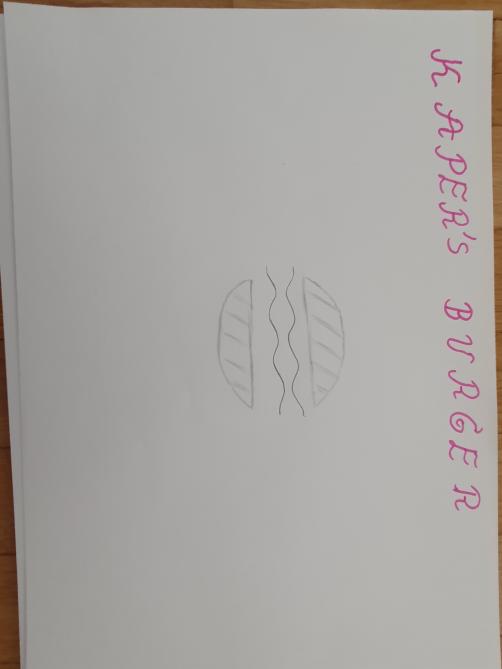 KAPER's BURGER